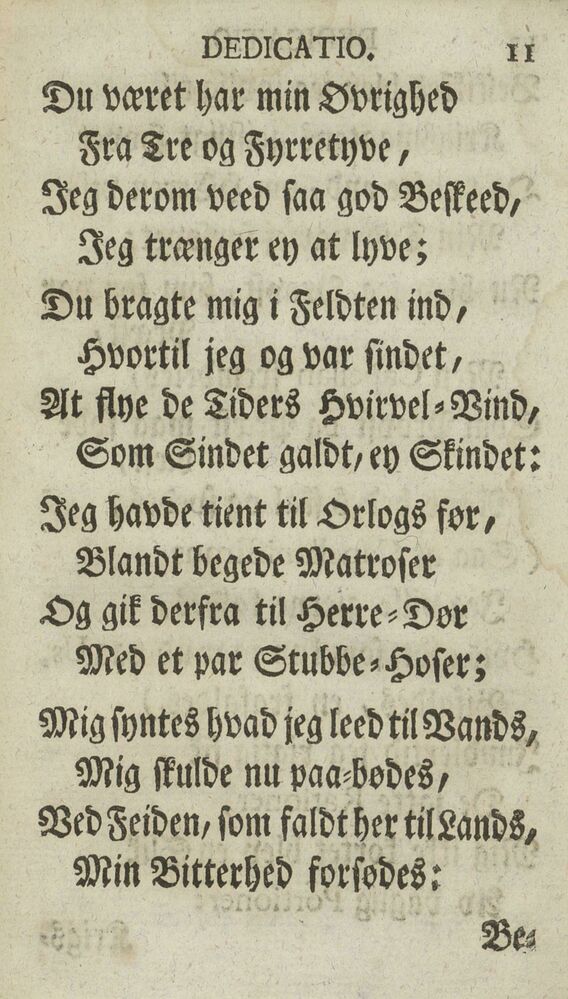 DEDICATIO. 11
Du været har min Øvrighed
Fra Tre og Fyrretyve,
Jeg derom veed saa god Beskeed,
Jeg trænger ey at lyve;
Du bragte mig i Feldten ind,
Hvortil jeg og var sindet,
At flye de Tiders Hvirvel-Vind,
Som Sindet galdt, ey Skindet:
Jeg havde tient til Orlogs før,
Blandt begede Matroser
Og gik derfra til Herre-Dør
Med et par Stubbe-Hoser;
Mig syntes hvad jeg leed til Vands,
Mig skulde nu paa-bødes,
Ved Feiden, som faldt her til Lands,
Min Bitterhed forsødes:
Be-